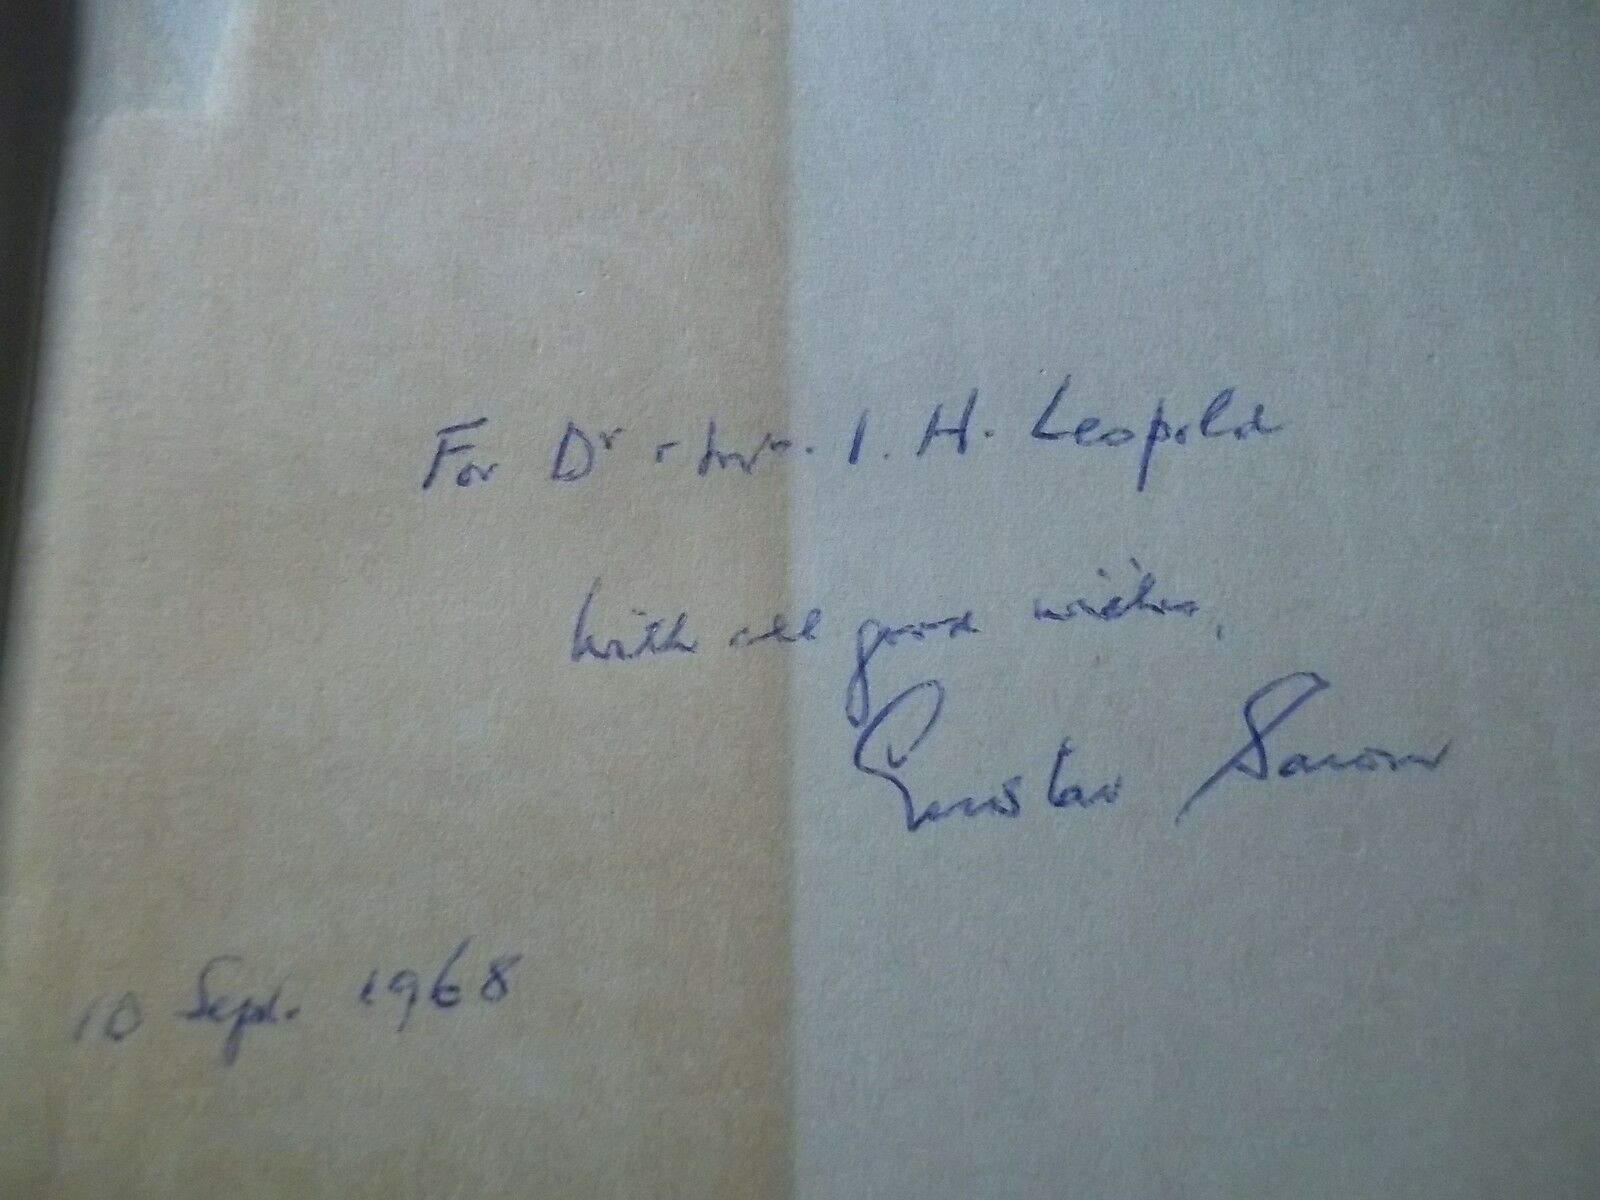 For Dr + Mrs. I. H. Leopold
With all good wishes,
Gustav
10 Sept. 1968